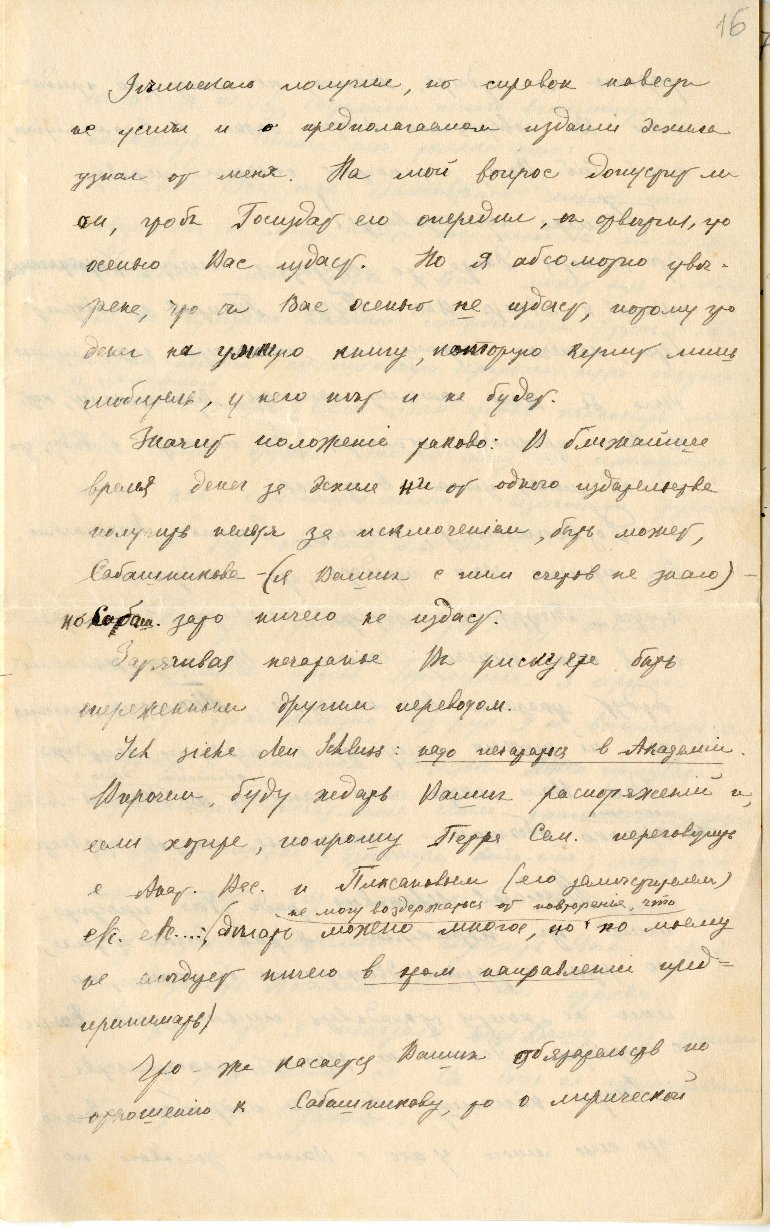 16
получил, но справок навести
не успел и о предполагаемом издании Эсхила
узнал от меня. На мой вопрос допустит ли
он, чтобы Госиздат его опередил, он отвечал, что
осенью Вас издаст. Но я абсолютно уве-
рен, что он Вас осенью не издаст, потому что
денег на умную книгу, которую купит лишь
любитель, у него нет и не будет.
Значит положение таково: В ближайшее
время денег за Эсхила ни от одного издательства
получить нельзя за исключением, быть может,
Сабашникова – (я Ваших с ним счетов не знаю) –
но Сабаш. зато ничего не издаст.
Затягивая печатанье Вы рискуете быть
опереженным другим переводом.
Ich ziehe den Schluss: надо печататься в Академии.
Впрочем, буду ждать Ваших распоряжений и,
если хотите, попрошу Петра Сем. переговорить
с Вяч. (его заместителем)
не могу воздержаться от повторения, что
etc. etc....: (делать можно многое, но по моему
не следует ничего в этом направлении пред-
принимать)
Что же касается Ваших обязательств по
отношению к Сабашникову, то о лирической